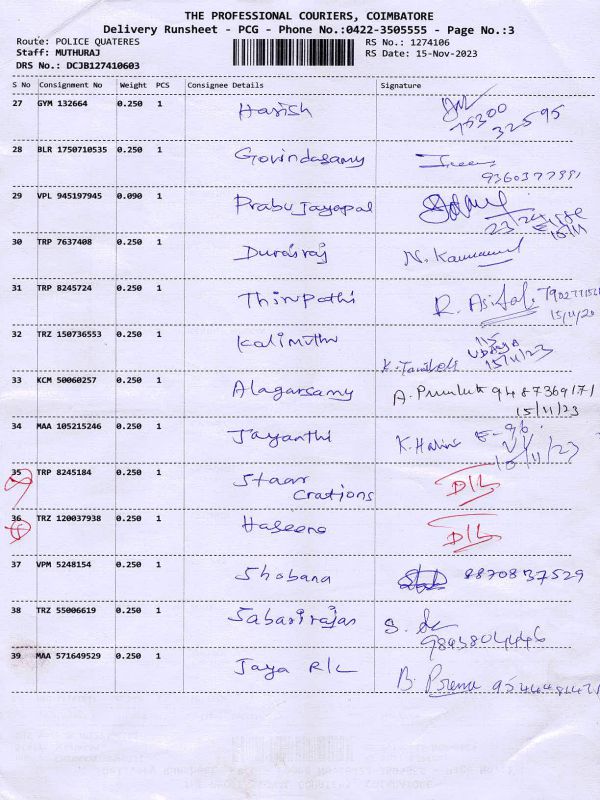 THE PROFESSIONAL COURIERS, COIMBATORE
Delivery Runsheet - PCG - Phone No.:0422-3505555 - Page No.:3
Route: POLICE QUATERES RS No.: 1274106
Staff: MUTHURAJ RS Date: 15-Nov-2023
DRS No.: DCJB127410603
S No Consignment No Weight PCS Consignee Details Signature
27 GYM 132664 0.250 1 Harish
75300
32595
28 BLR 1750710535 0.250 1 Govindasamy
9360377991
29 VPL 945197945 0.090 1 Prabu Jayapal
30 TRP 7637408 0.250 1 Durairaj N.
31 TRP 8245724 0.250 1 Thirupathi R.
32 TRZ 150736553 0.250 1 Kalimuthu
15/11/23
33 KCM 50060257 0.250 1 Alagarsamy A. 9487369171
15/11/23
34 MAA 105215246 0.250 1 Jayanthi K.
35 TRP 8245184 0.250 1 Staar D/L
Crations
36 TRZ 120037938 0.250 1 Haseena D/L
37 VPM 5248154 0.250 1 Shobana 8870837529
38 TRZ 55006619 0.250 1 Sabarirajan S.
39 MAA 571649529 0.250 1 Jaya R/L B. Prema